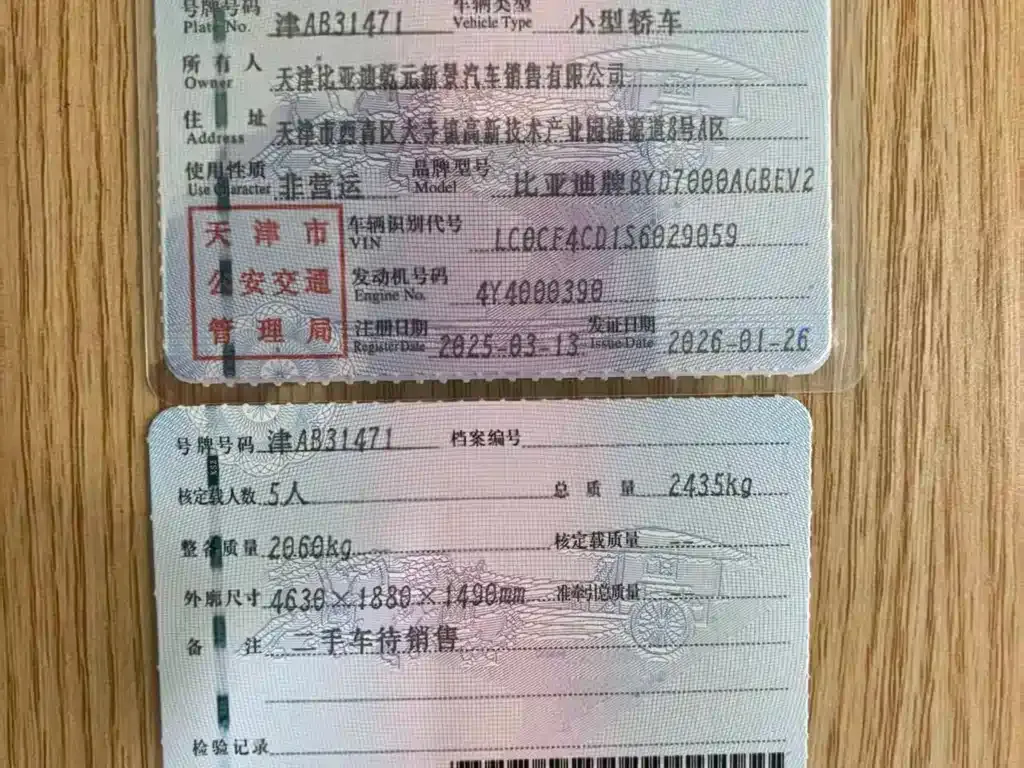 号牌号码 津AB31471 车辆类型 小型轿车
Plate No. Vehicle Type
所有人 天津比亚迪乾元新景汽车销售有限公司
Owner
住址 天津市西青区大寺镇高新技术产业园储源道8号A区
Address
使用性质 非营运 品牌型号 比亚迪牌BYD7000AGBEV2
Use Character Model
天津市 车辆识别代号 LC0CF4CD1S6029059
VIN
公安交通 发动机号码 4Y4000390
Engine No.
管理局 注册日期 2025-03-13 发证日期 2026-01-26
Register Date Issue Date
号牌号码 津AB31471 档案编号
核定载人数 5人 总质量 2435kg
整备质量 2060kg 核定载质量 --
外廓尺寸 4630×1880×1490mm 准牵引总质量 --
备注 二手车待销售
检验记录